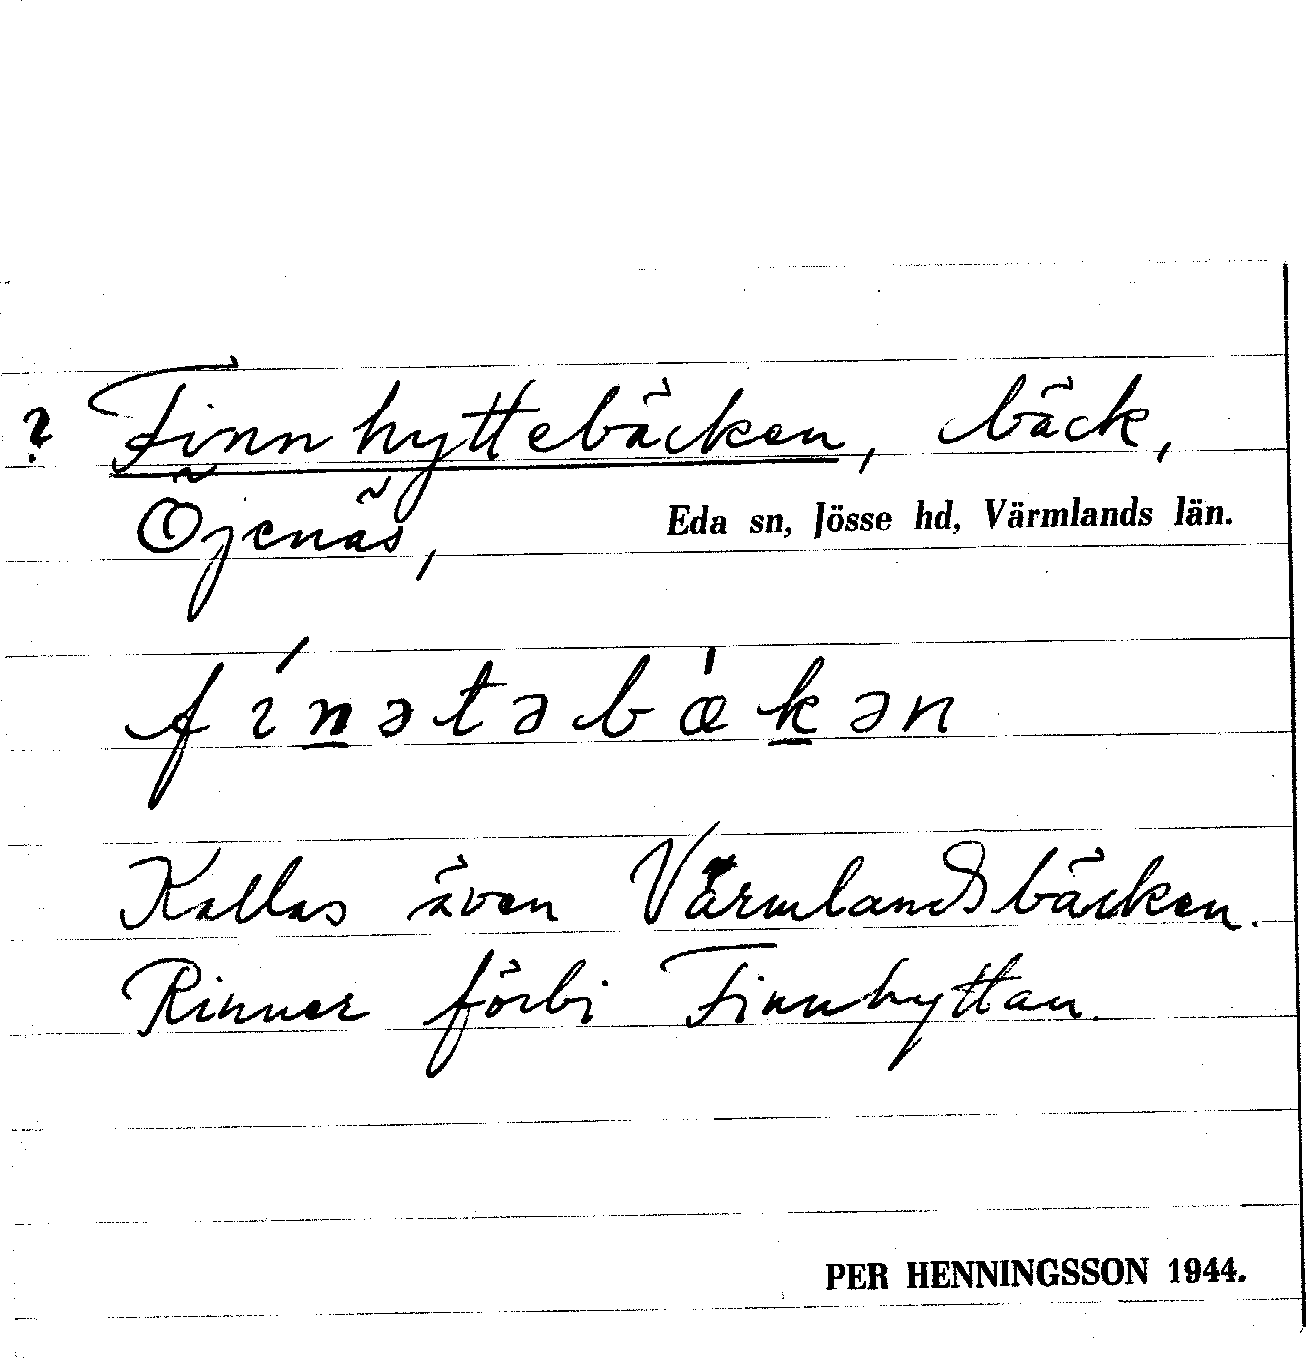 ? Finnhyttebäcken, bäck,
Öjenäs, Eda sn, Jösse hd, Värmlands län.
fínətəbæ̍kən
Kallas även Värmlandsbäcken.
Rinner förbi Finnhyttan.
PER HENNINGSSON 1944.